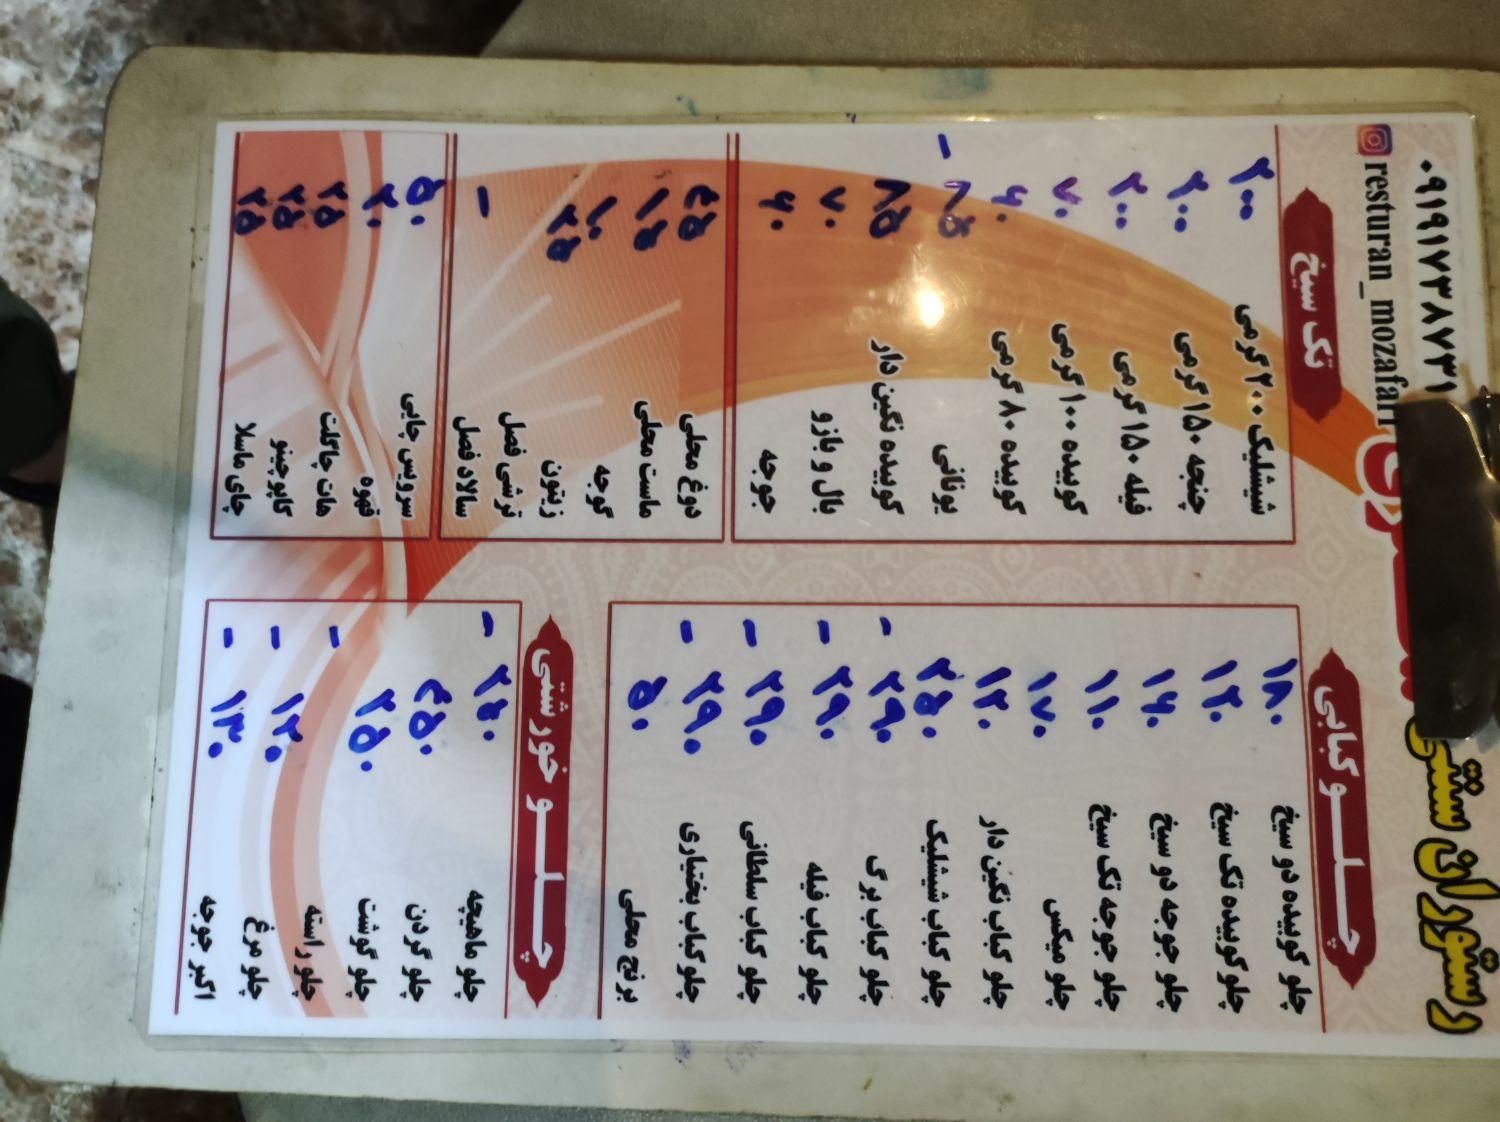 رستوران سنتی
۰۹۱۹۱۷۳۸۷۳۱
resturan_mozafari
چلو کبابی
چلو کوبیده دو سیخ ۱۸۰
چلو کوبیده تک سیخ ۱۲۰
چلو جوجه دو سیخ ۱۶۰
چلو جوجه تک سیخ ۱۱۰
چلو میکس ۱۷۰
چلو کباب نگین دار ۱۲۰
چلو کباب شیشلیک ۲۵۰
چلو کباب برگ ۲۹۰ -
چلو کباب فیله ۲۹۰ -
چلو کباب سلطانی ۲۹۰ -
چلو کباب بختیاری ۲۹۰ -
برنج محلی ۵۰
چلو خورشتی
چلو ماهیچه ۲۸۰ -
چلو گردن ۴۵۰
چلو گوشت ۲۵۰
چلو راسته -
چلو مرغ ۱۳۰ -
اکبر جوجه ۱۳۰ -
تک سیخ
شیشلیک ۲۰۰ گرمی ۲۰۰
چنجه ۱۵۰ گرمی ۲۰۰
فیله ۱۵۰ گرمی ۲۰۰
کوبیده ۱۰۰ گرمی ۷۰
کوبیده ۸۰ گرمی ۶۰
یونانی ۸۵ -
کوبیده نگین دار ۸۵
بال و بازو ۷۰
جوجه ۶۰
دوغ محلی ۴۵
ماست محلی ۱۵
گوجه ۱۰
زیتون ۲۵
ترشی فصل
سالاد فصل -
سرویس چایی ۵۰
قهوه ۲۰
هات چاکلت ۲۵
کاپوچینو ۲۵
چای ماسالا ۲۵